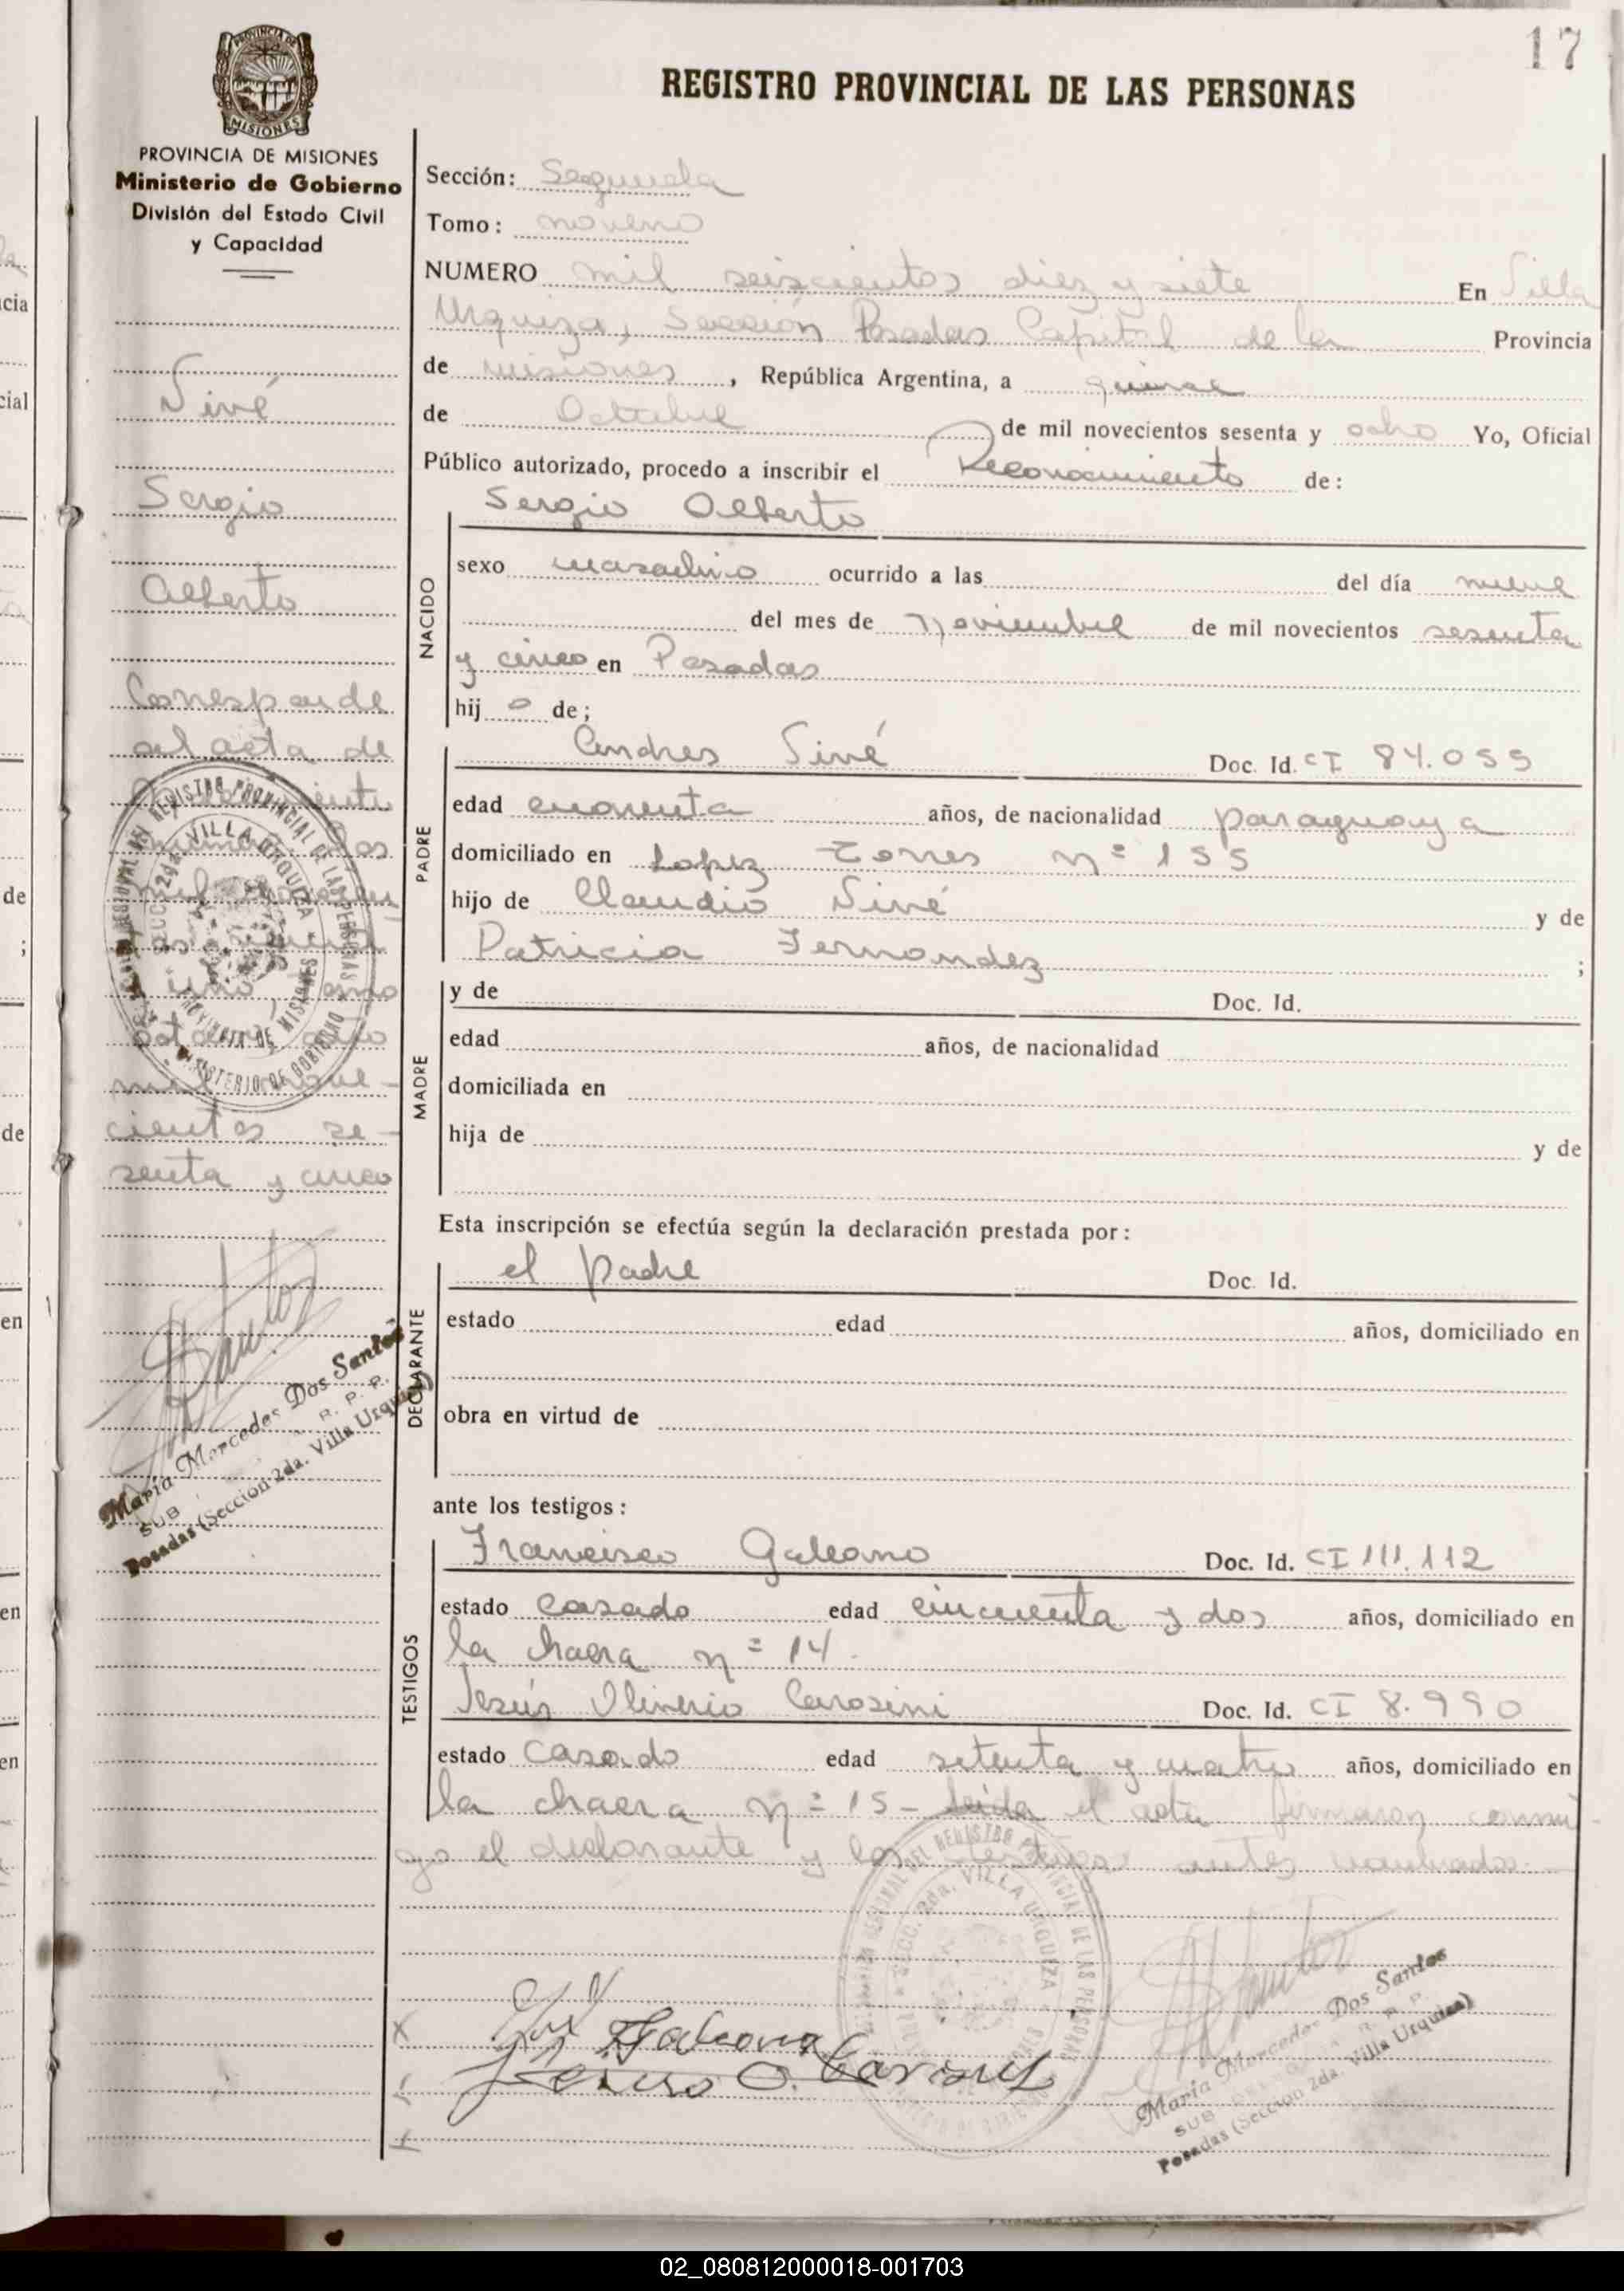 17
PROVINCIA DE
MISIONES
REGISTRO PROVINCIAL DE LAS PERSONAS
PROVINCIA DE MISIONES
Ministerio de Gobierno
División del Estado Civil
y Capacidad
Sivé
Sergio
Alberto
Corresponde
al acta de
mil nove-
cientos se-
senta y cinco
María Mercedes Dos Santos
SUB R. P. P.
Posadas (Sección 2da. Villa Urquiza)
Sección: Segunda
Tomo: noveno
NUMERO mil seiscientos diez y siete En Villa
Urquiza, Sección Posadas Capital de la Provincia
de misiones, República Argentina, a quince
de Octubre de mil novecientos sesenta y ocho Yo, Oficial
Público autorizado, procedo a inscribir el Reconocimiento de:
NACIDO
Sergio Alberto
sexo masculino ocurrido a las del día nueve
del mes de Noviembre de mil novecientos sesenta
y cinco en Posadas
hijo de;
PADRE
Andres Sivé Doc. Id. CI 84.055
edad cuarenta años, de nacionalidad paraguaya
domiciliado en Lopez Torres nº 155
hijo de Claudio Sivé y de
Patricia Fernandez ;
MADRE
y de Doc. Id.
edad años, de nacionalidad
domiciliada en
hija de y de
Esta inscripción se efectúa según la declaración prestada por:
DECLARANTE
el padre Doc. Id.
estado edad años, domiciliado en
obra en virtud de
ante los testigos:
TESTIGOS
Francisco Galeano Doc. Id. CI 111.112
estado casado edad cincuenta y dos años, domiciliado en
la chacra nº 14.
Jesús Carosini Doc. Id. CI 8.990
estado casado edad setenta y cuatro años, domiciliado en
la chacra nº 15 - leída el acta firmaron conmi
go el declarante y los testigos antes nombrados.
Galeano
María Mercedes Dos Santos
SUB R. P. P.
Posadas (Sección 2da. Villa Urquiza)
02_080812000018-001703